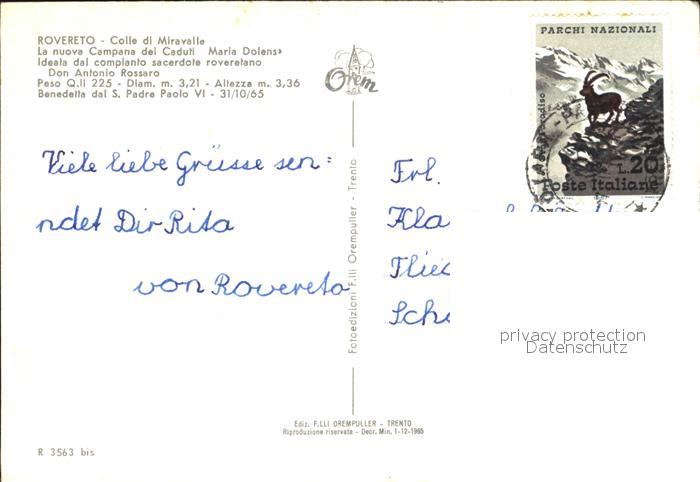 ROVERETO - Colle di Miravalle
La nuova Campana dei Caduti Maria Dolens
Ideata dal compianto sacerdote roveretano
Don Antonio Rossaro
Peso Q.li 225 - Diam. m. 3,21 - Altezza m. 3,36
Benedetta dal S. Padre Paolo VI - 31/10/65
Orem
PARCHI NAZIONALI
L.20
Poste Italiane
Viele liebe Grüsse sen=
ndet Dir Rita
von Rovereto
Fotoedizioni F.lli Orempuller - Trento
Frl.
Kla
Flie
Sch
privacy protection
Datenschutz
Ediz. F.LLI OREMPULLER - TRENTO
Riproduzione riservata - Decr. Min. 1-12-1965
R 3563 bis